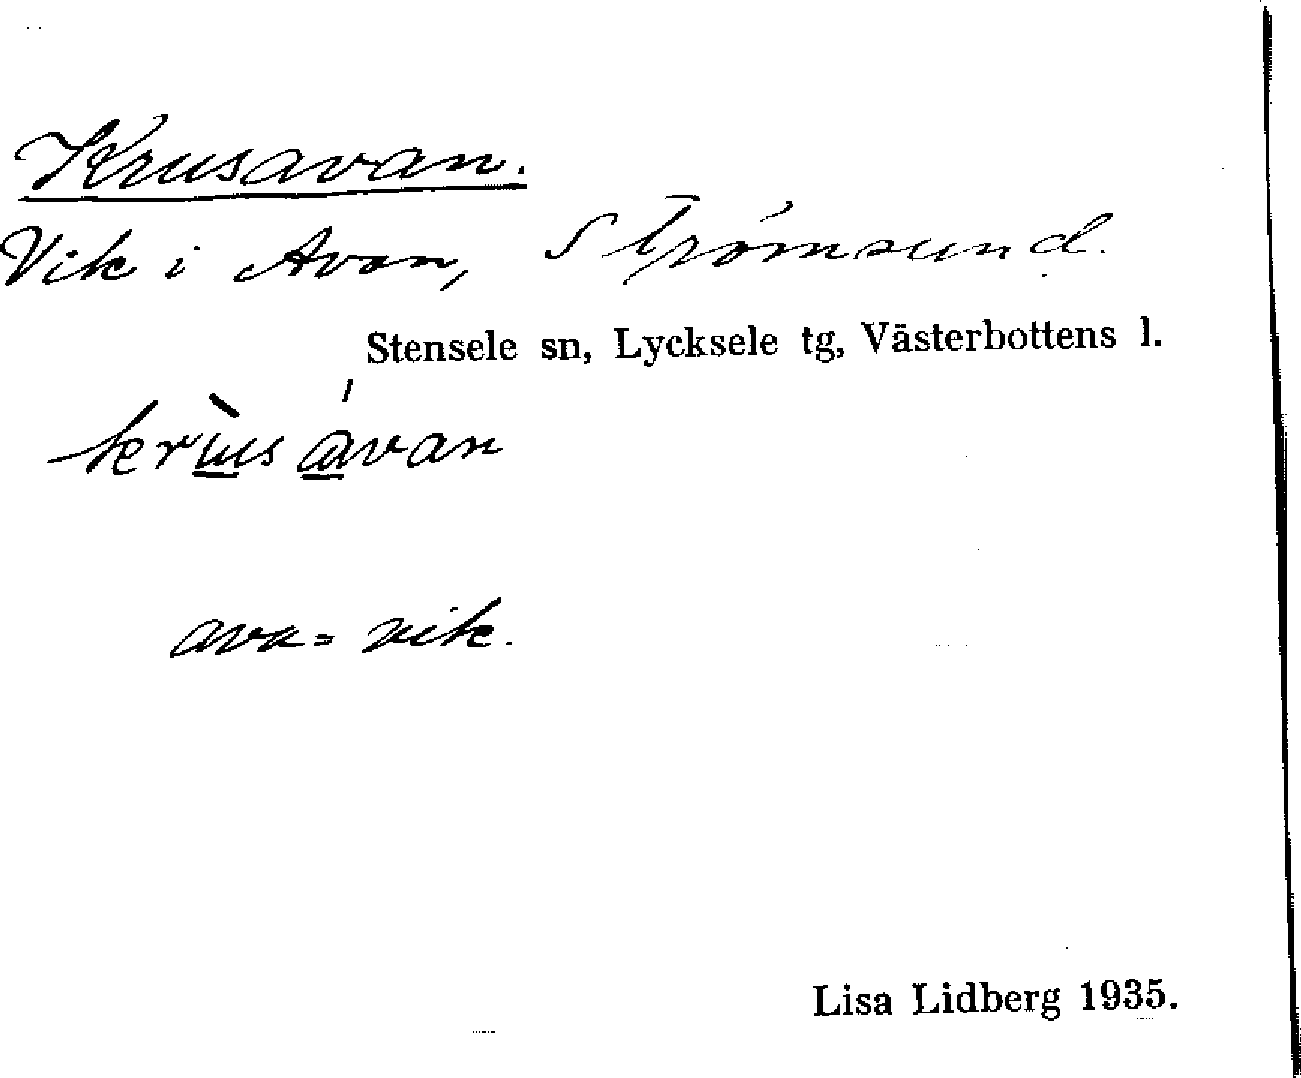 Krusavan.
Vik i Avan, Strömsund.
Stensele sn, Lycksele tg, Västerbottens l.
krùsávan
ava = vik.
Lisa Lidberg 1935.